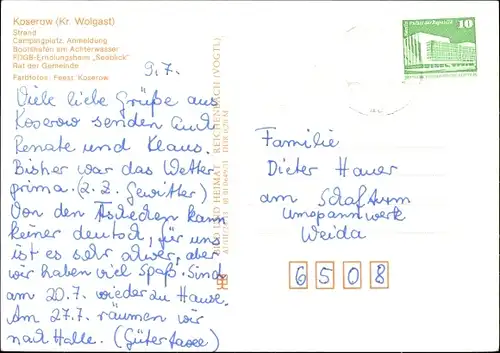 Koserow (Kr. Wolgast)
Strand
Campingplatz, Anmeldung
Bootshafen am Achterwasser
FDGB-Erholungsheim „Seeblick"
Rat der Gemeinde
Farbfotos: Feest, Koserow
9.7.
Viele liebe Grüße aus
Koserow senden Euch
Renate und Klaus.
Bisher war das Wetter
prima. (2. Z. Gewitter)
Von den Tschechen kann
keiner deutsch, für uns
ist es sehr schwer, aber
wir haben viel Spaß. Sind
am 20.7. wieder zu Hause.
Am 27.7. räumen wir
nach Halle. (Gütertaxe)
BILD UND HEIMAT REICHENBACH (VOGTL)
10
Familie
Dieter Hauer
am Schafturm
Umspannwerk
Weida
6508